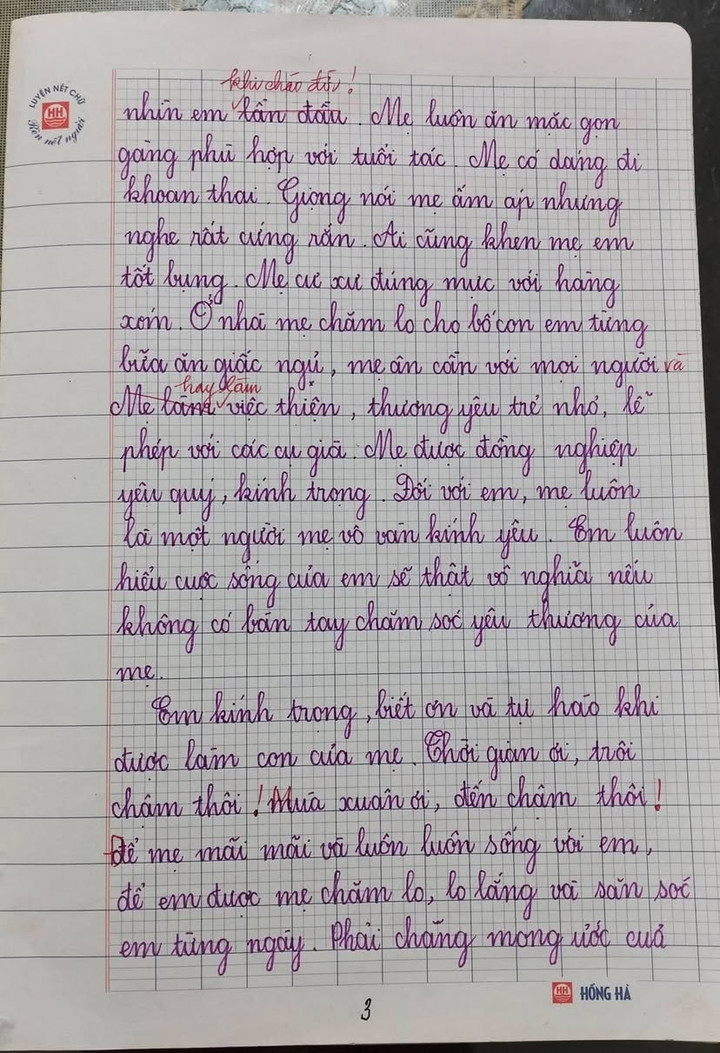 khi chào đời!
LUYỆN NÉT CHỮ
HH
Rèn nết người
nhìn em lần đầu. Mẹ luôn ăn mặc gọn
gàng phù hợp với tuổi tác. Mẹ có dáng đi
khoan thai. Giọng nói mẹ ấm áp nhưng
nghe rất cứng rắn. Ai cũng khen mẹ em
tốt bụng. Mẹ cư xử đúng mực với hàng
xóm. Ở nhà mẹ chăm lo cho bố con em từng
bữa ăn giấc ngủ, mẹ ân cần với mọi người và
hay làm
Mẹ làng việc thiện, thương yêu trẻ nhỏ, lễ
phép với các cụ già. Mẹ được đồng nghiệp
yêu quý, kính trọng. Đối với em, mẹ luôn
là một người mẹ vô vàn kính yêu. Em luôn
hiểu cuộc sống của em sẽ thật vô nghĩa nếu
không có bàn tay chăm sóc yêu thương của
mẹ.
Em kính trọng, biết ơn và tự hào khi
được làm con của mẹ. Thời gian ơi, trôi
chậm thôi! Mùa xuân ơi, đến chậm thôi!
Để mẹ mãi mãi và luôn luôn sống với em,
để em được mẹ chăm lo, lo lắng và săn sóc
em từng ngày. Phải chăng mong ước của
HH HỒNG HÀ
3